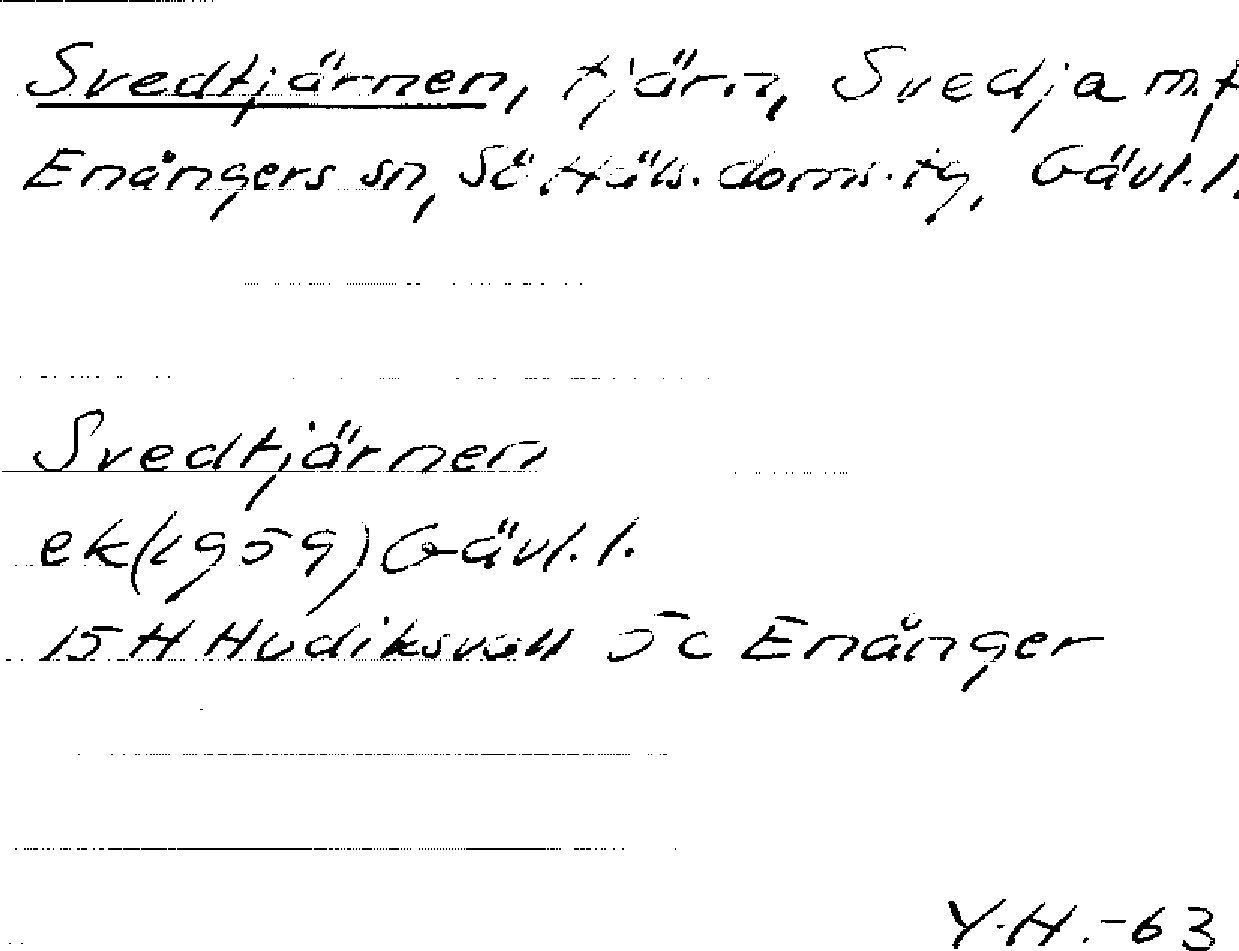 Svedtjärnen, tjärn, Svedja m.f
Enångers sn, Sö Häls. doms. tg, Gävl. l.
Svedtjärnen
ek(1959) Gävl. l.
15 H Hudiksvall 5c Enånger
Y.H.-63